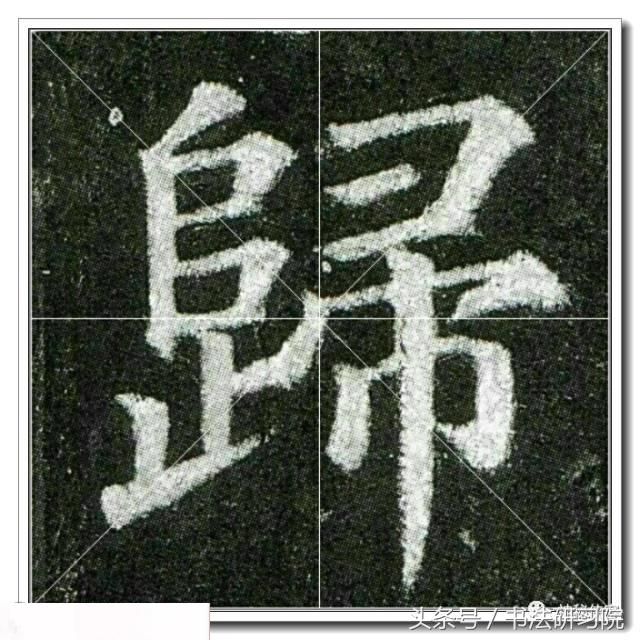 歸
头条号 / 书法研习院